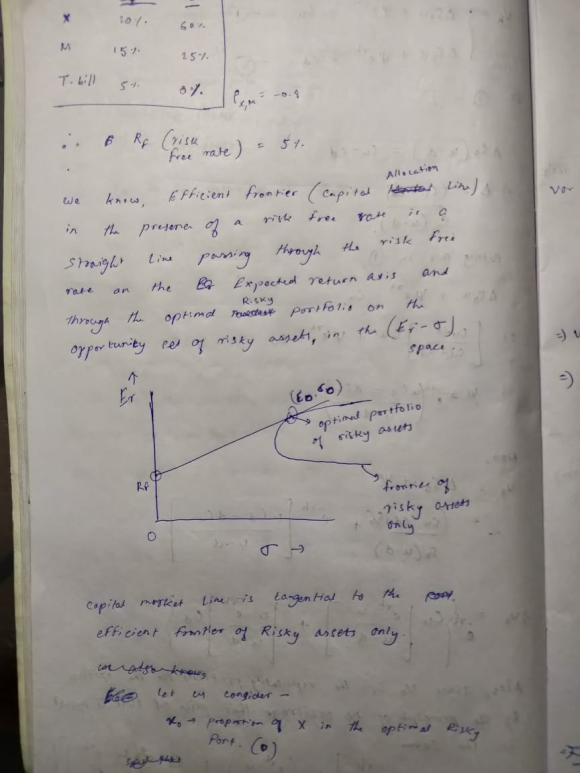 X 20% 60%
M 15% 25%
T. bill 5% 0%
ρx,m = -0.9
∴ Rf (risk free rate) = 5%
we know, Efficient frontier (Capital Allocation Line)
in the presence of a risk free rate is a
straight line passing through the risk free
rate on the Expected return axis and
through the optimal Risky portfolio on the
opportunity set of risky assets, in the (Er - σ)
space.
Er ↑
(ED, σD)
→ optimal portfolio
of risky assets
Rf
→ frontier of
risky assets
only
0
σ →
capital market line is tangential to the
efficient frontier of Risky assets only.
let us consider -
x0 → proportion of X in the optimal Risky
Port. (O)